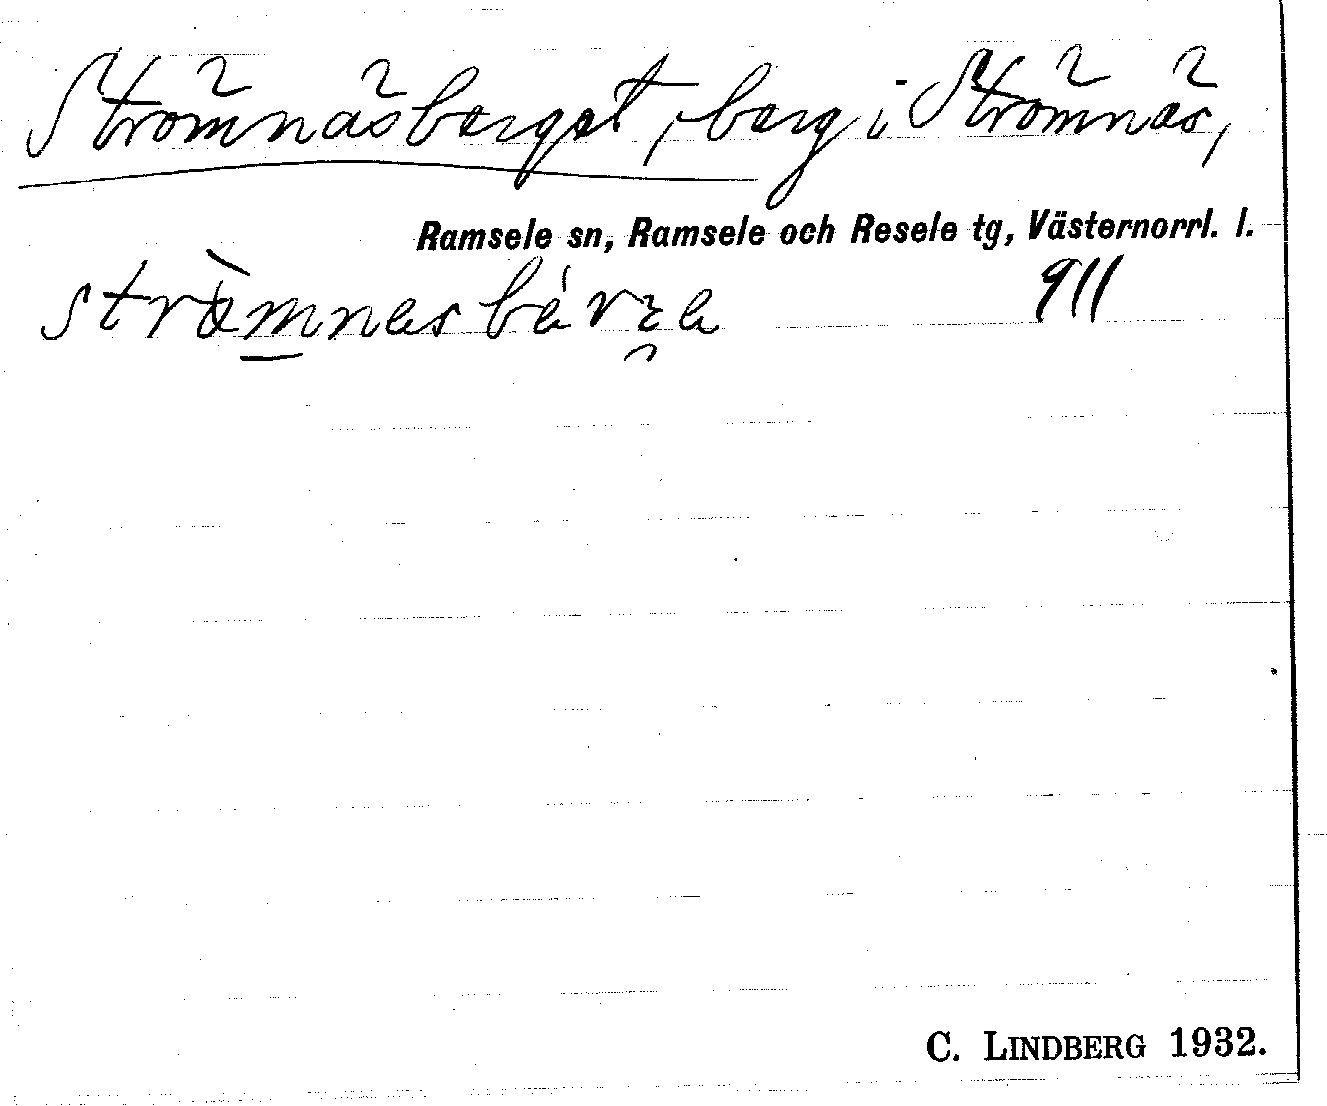 Strömnäsberget, berg i Strömnäs,
Ramsele sn, Ramsele och Resele tg, Västernorrl. l.
911
C. LINDBERG 1932.